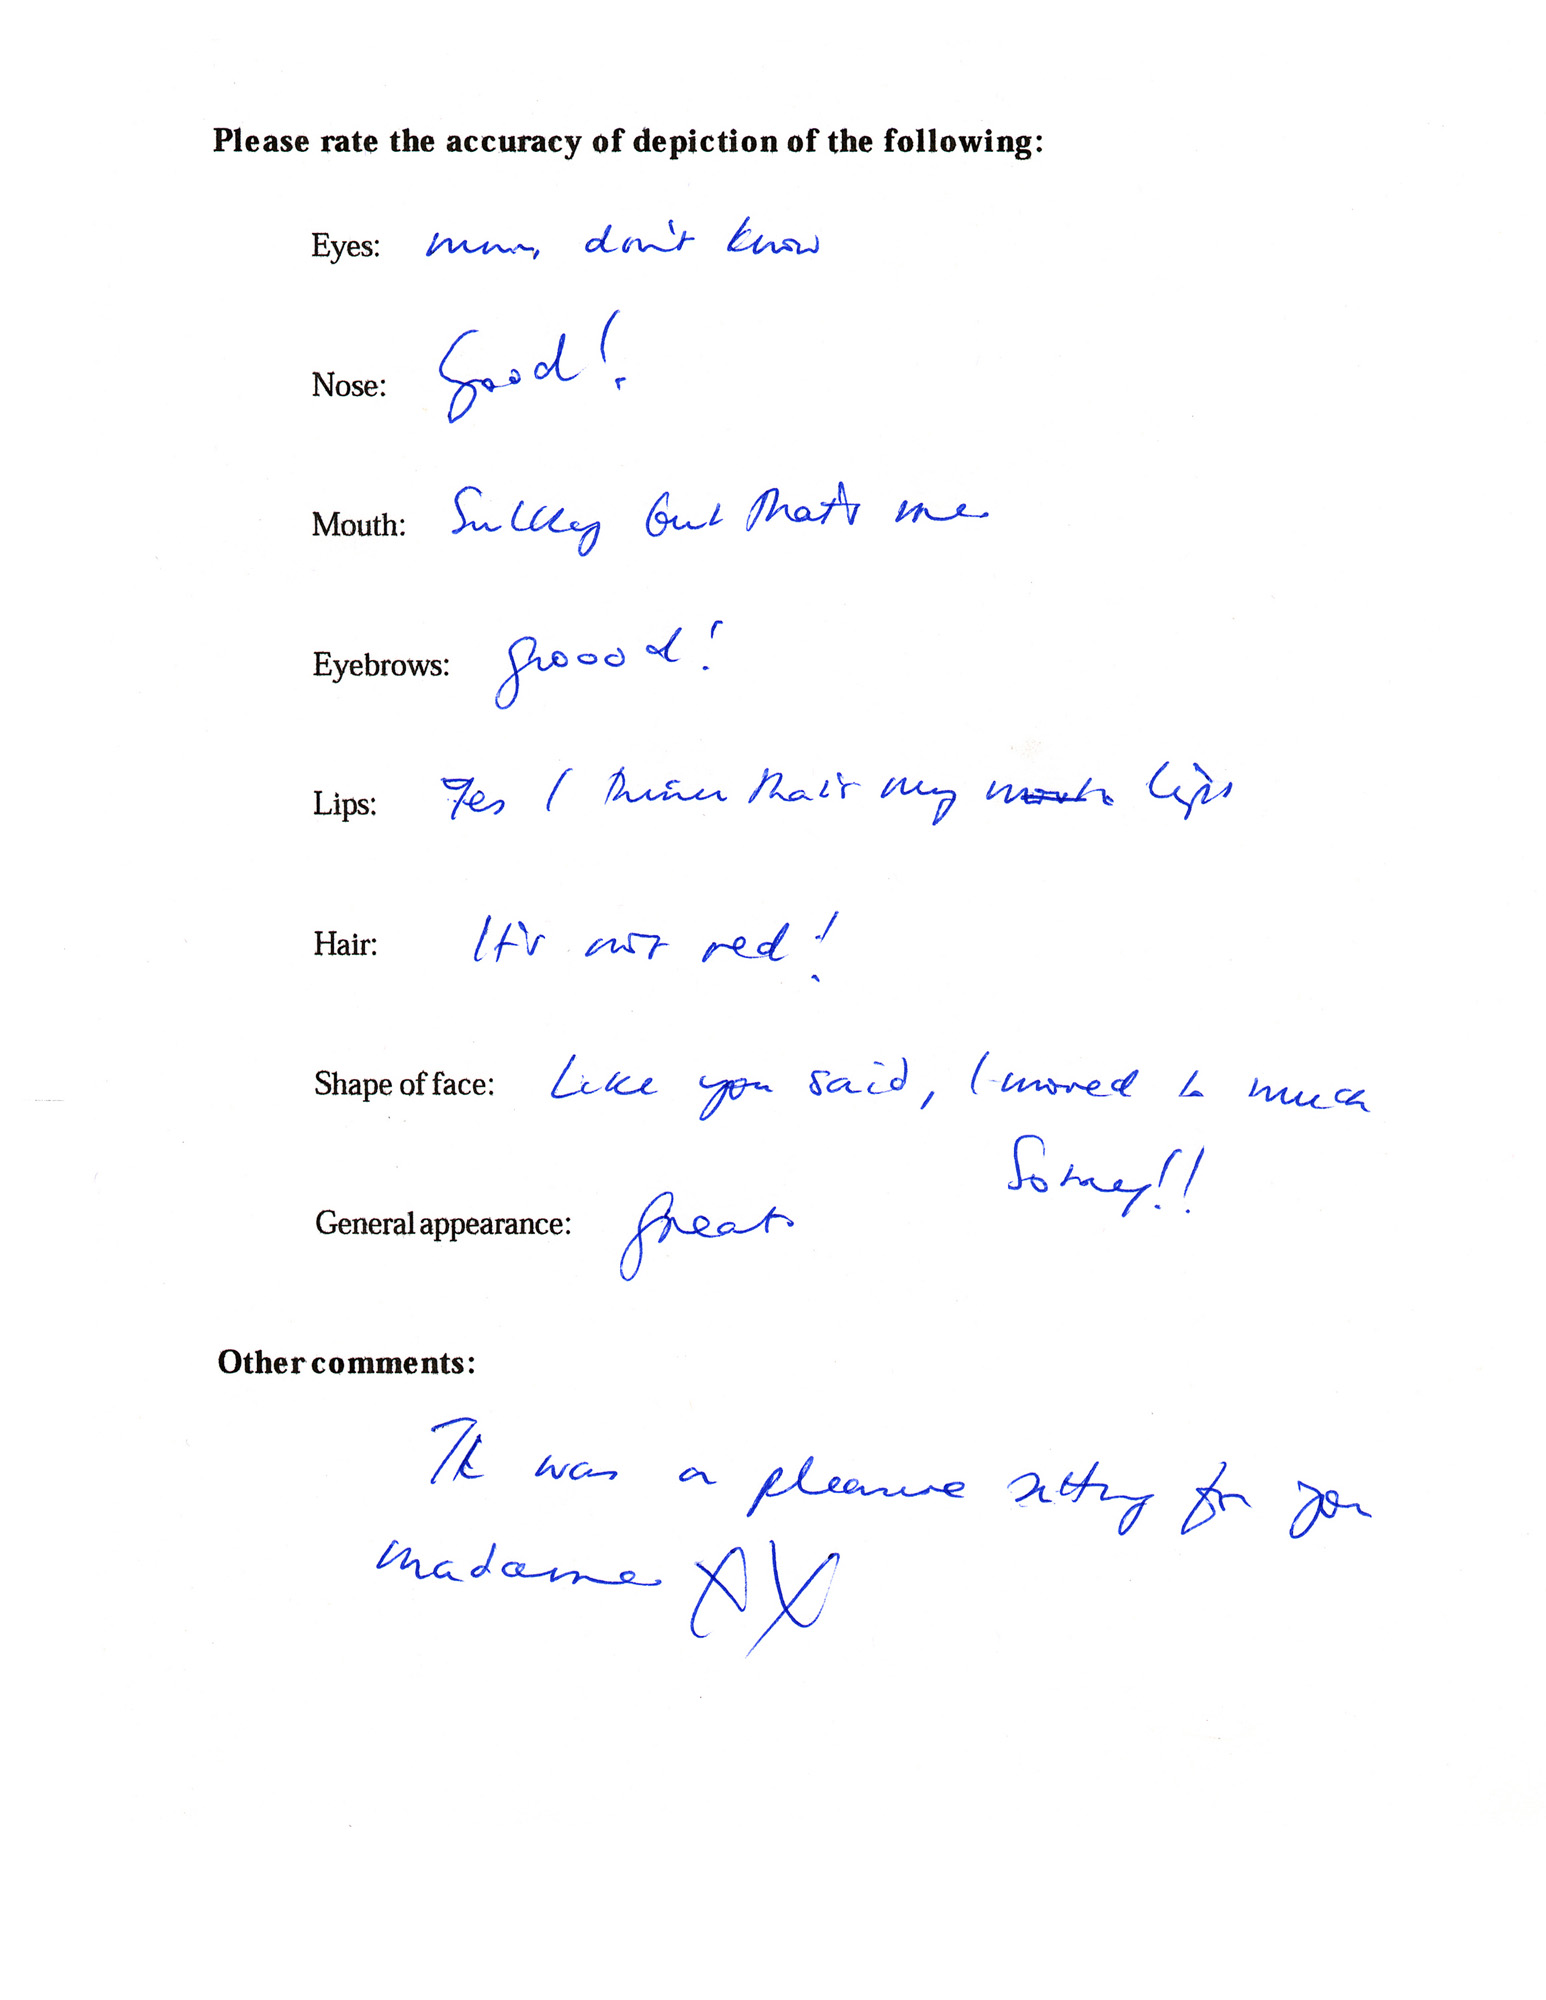 Please rate the accuracy of depiction of the following:
Eyes: mmm, don't know
Nose: Good!
Mouth: Sulky but that's me
Eyebrows: Groood!
Lips: Yes I think that's my mouth lips
Hair: It's not red!
Shape of face: Like you said, I moved to much
Sorry!!
General appearance: Great
Other comments:
It was a pleasure sitting for you
madame XX